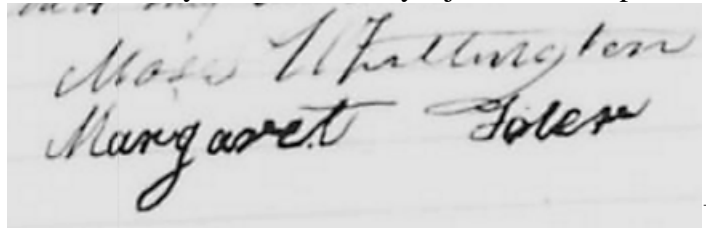 Mose Whittington
Margaret Toler